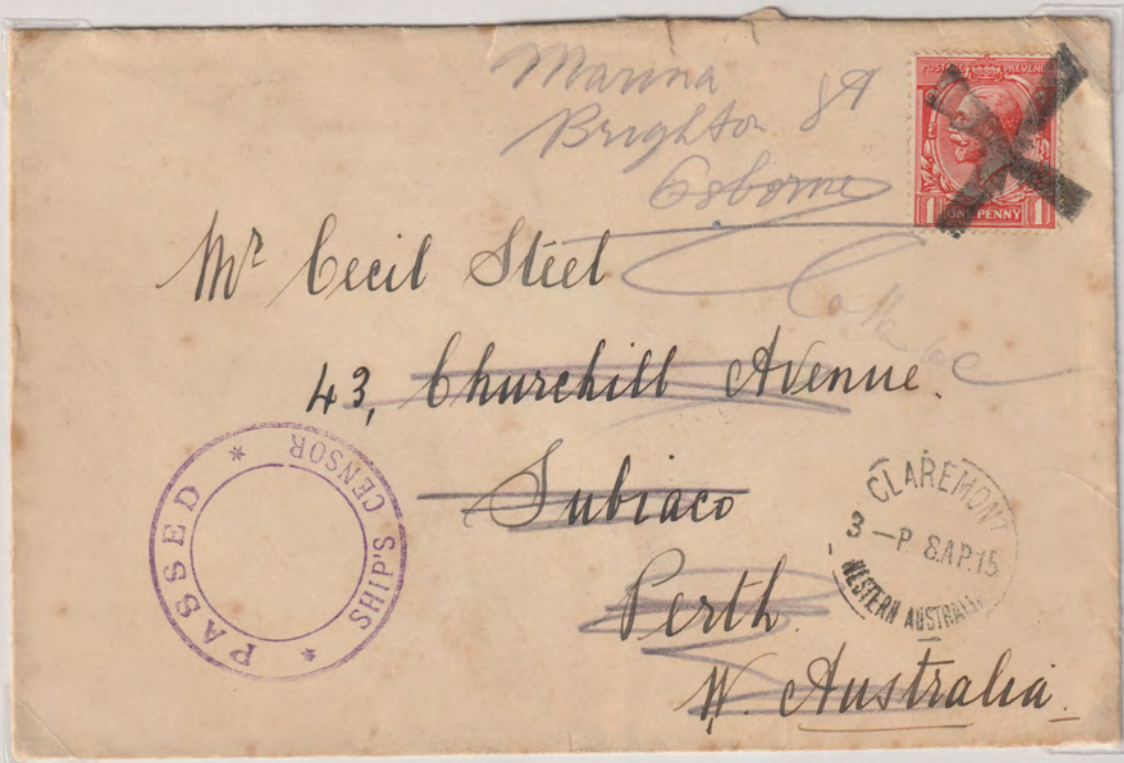 Marina
Brighton St
Osborne
POSTAGE REVENUE
1 ONE PENNY 1
Mr Cecil Steel
43, Churchill Avenue.
Subiaco
Perth.
W. Australia.
* PASSED * SHIP'S CENSOR
CLAREMONT
3 - P. 8AP.15
WESTERN AUSTRALIA